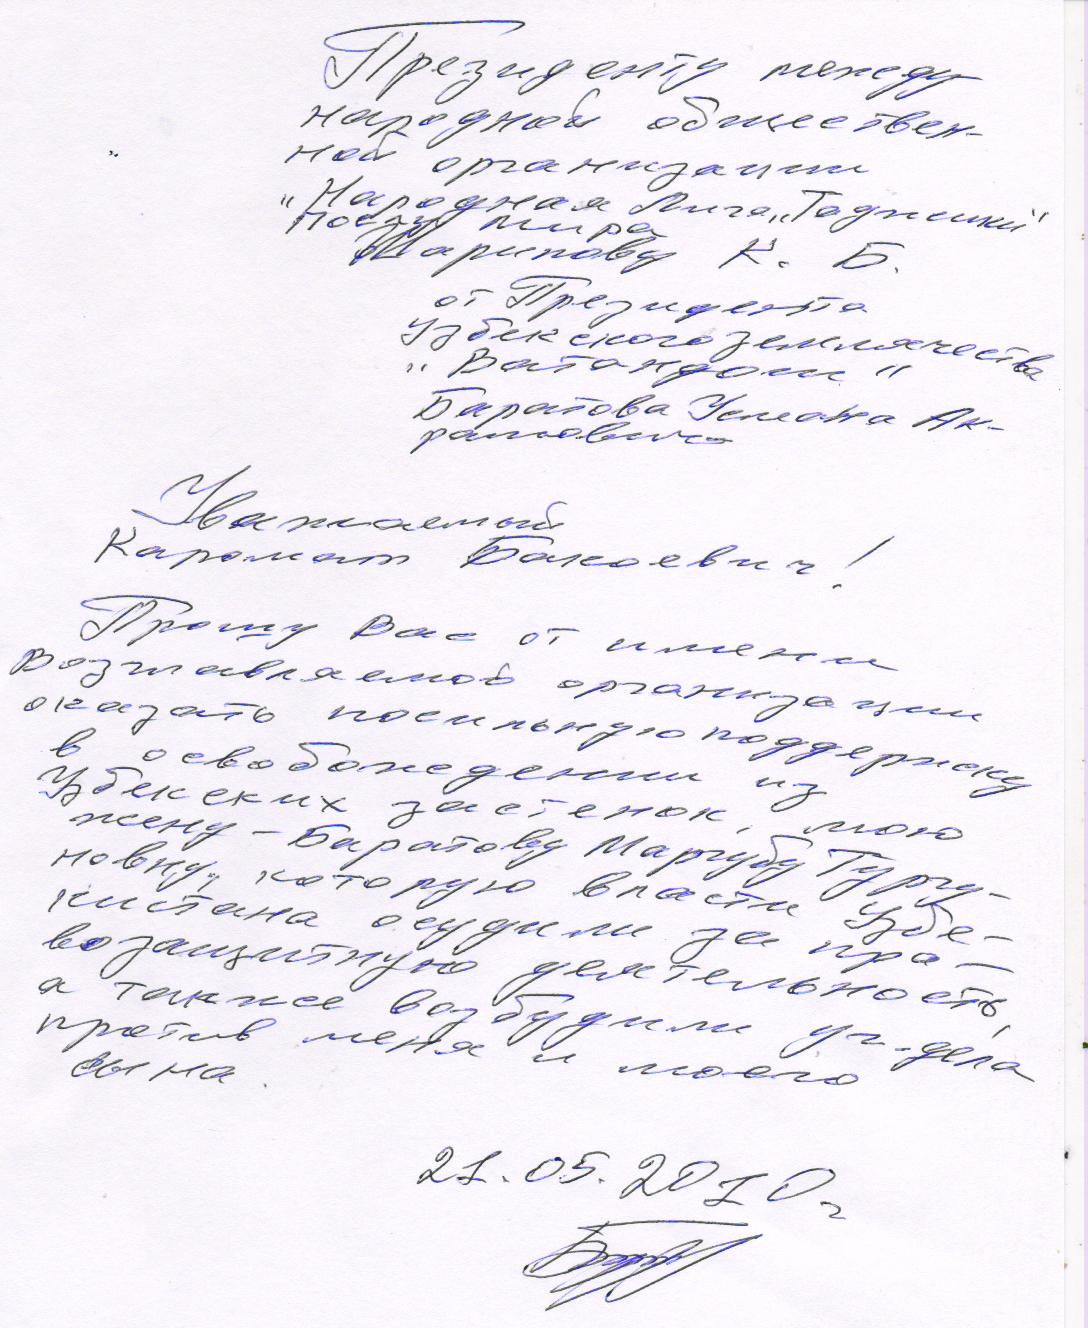 Президенту между
народной обществен-
ной организации
"Народная Лига "Таджики"
Мира
Шарипову К. Б.
от Президента
Узбекского землячества
"Ватандош"
Баратова Усмана Ак-
рамовича
Уважаемый
Каромат Бакоевич!
Прошу Вас от имени
возглавляемой организации
оказать посильную поддержку
в освобождении из
Узбекских застенок, мою
жену - Баратову Мангубу Тургу-
новну, которую власти Узбе-
кистана осудили за пра-
возащитную деятельность,
а также возбудили уг. дела
против меня и моего
сына.
21.05.2010г